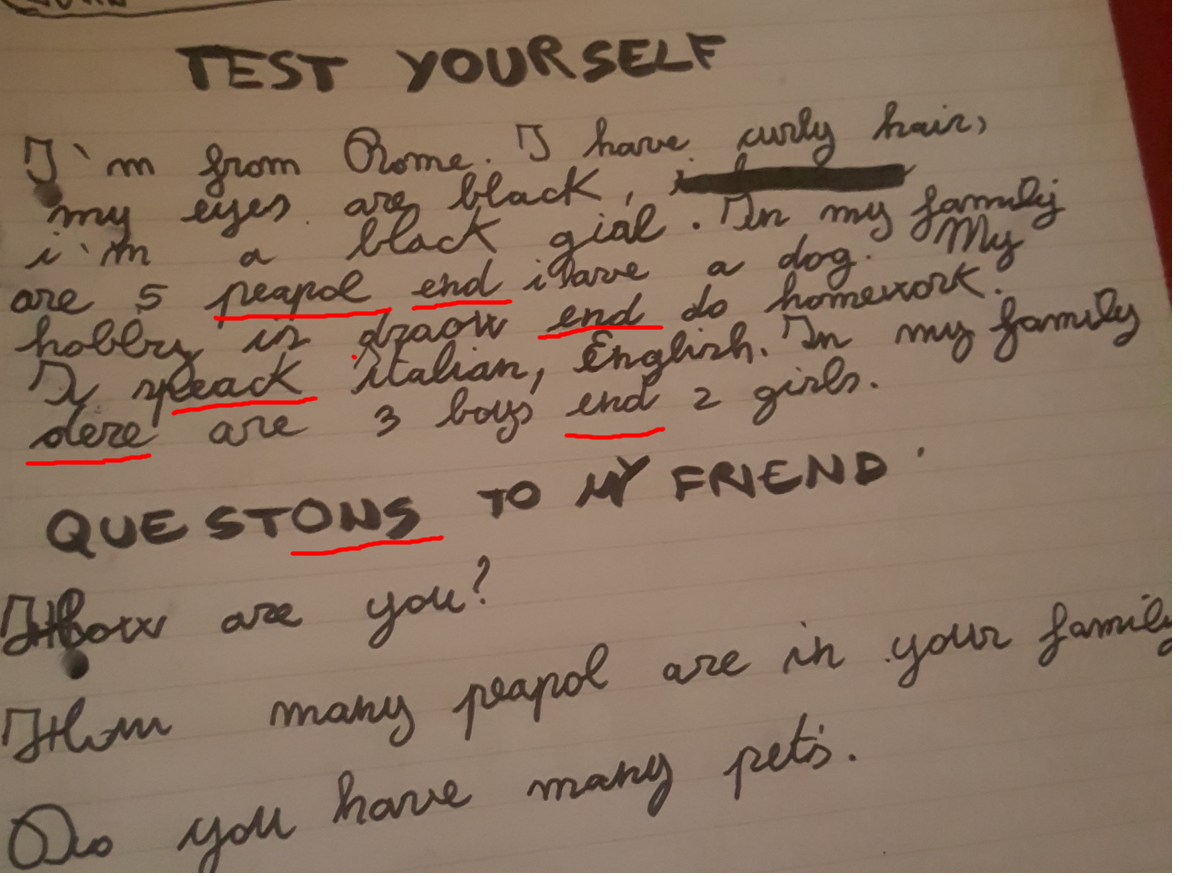 TEST YOURSELF
I'm from Rome. I have curly hair,
my eyes are black,
i'm a black gial. In my family
are 5 peapol end i have a dog. My
hobby is draow end do homework.
I speack italian, English. In my family
dere are 3 boys end 2 girls.
QUESTONS TO MY FRIEND
How are you?
How many peapol are in your family
Do you have many pets.